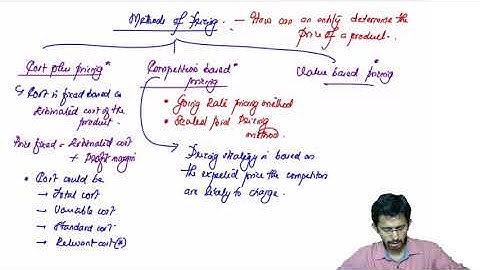 Methods of Pricing. — How can an entity determine the
Price of a product.
Cost plus pricing*
↳ Cost is fixed based on
Estimated cost of the
product.
Price fixed = Estimated cost
+ Profit margin
• Cost could be
→ Total cost
→ Variable cost
→ Standard cost
→ Relevant cost(*)
Competition based*
pricing
• Going Rate pricing method
• Sealed Bid Pricing
method.
Pricing strategy is based on
the expected price the competitors
are likely to charge.
Value based pricing